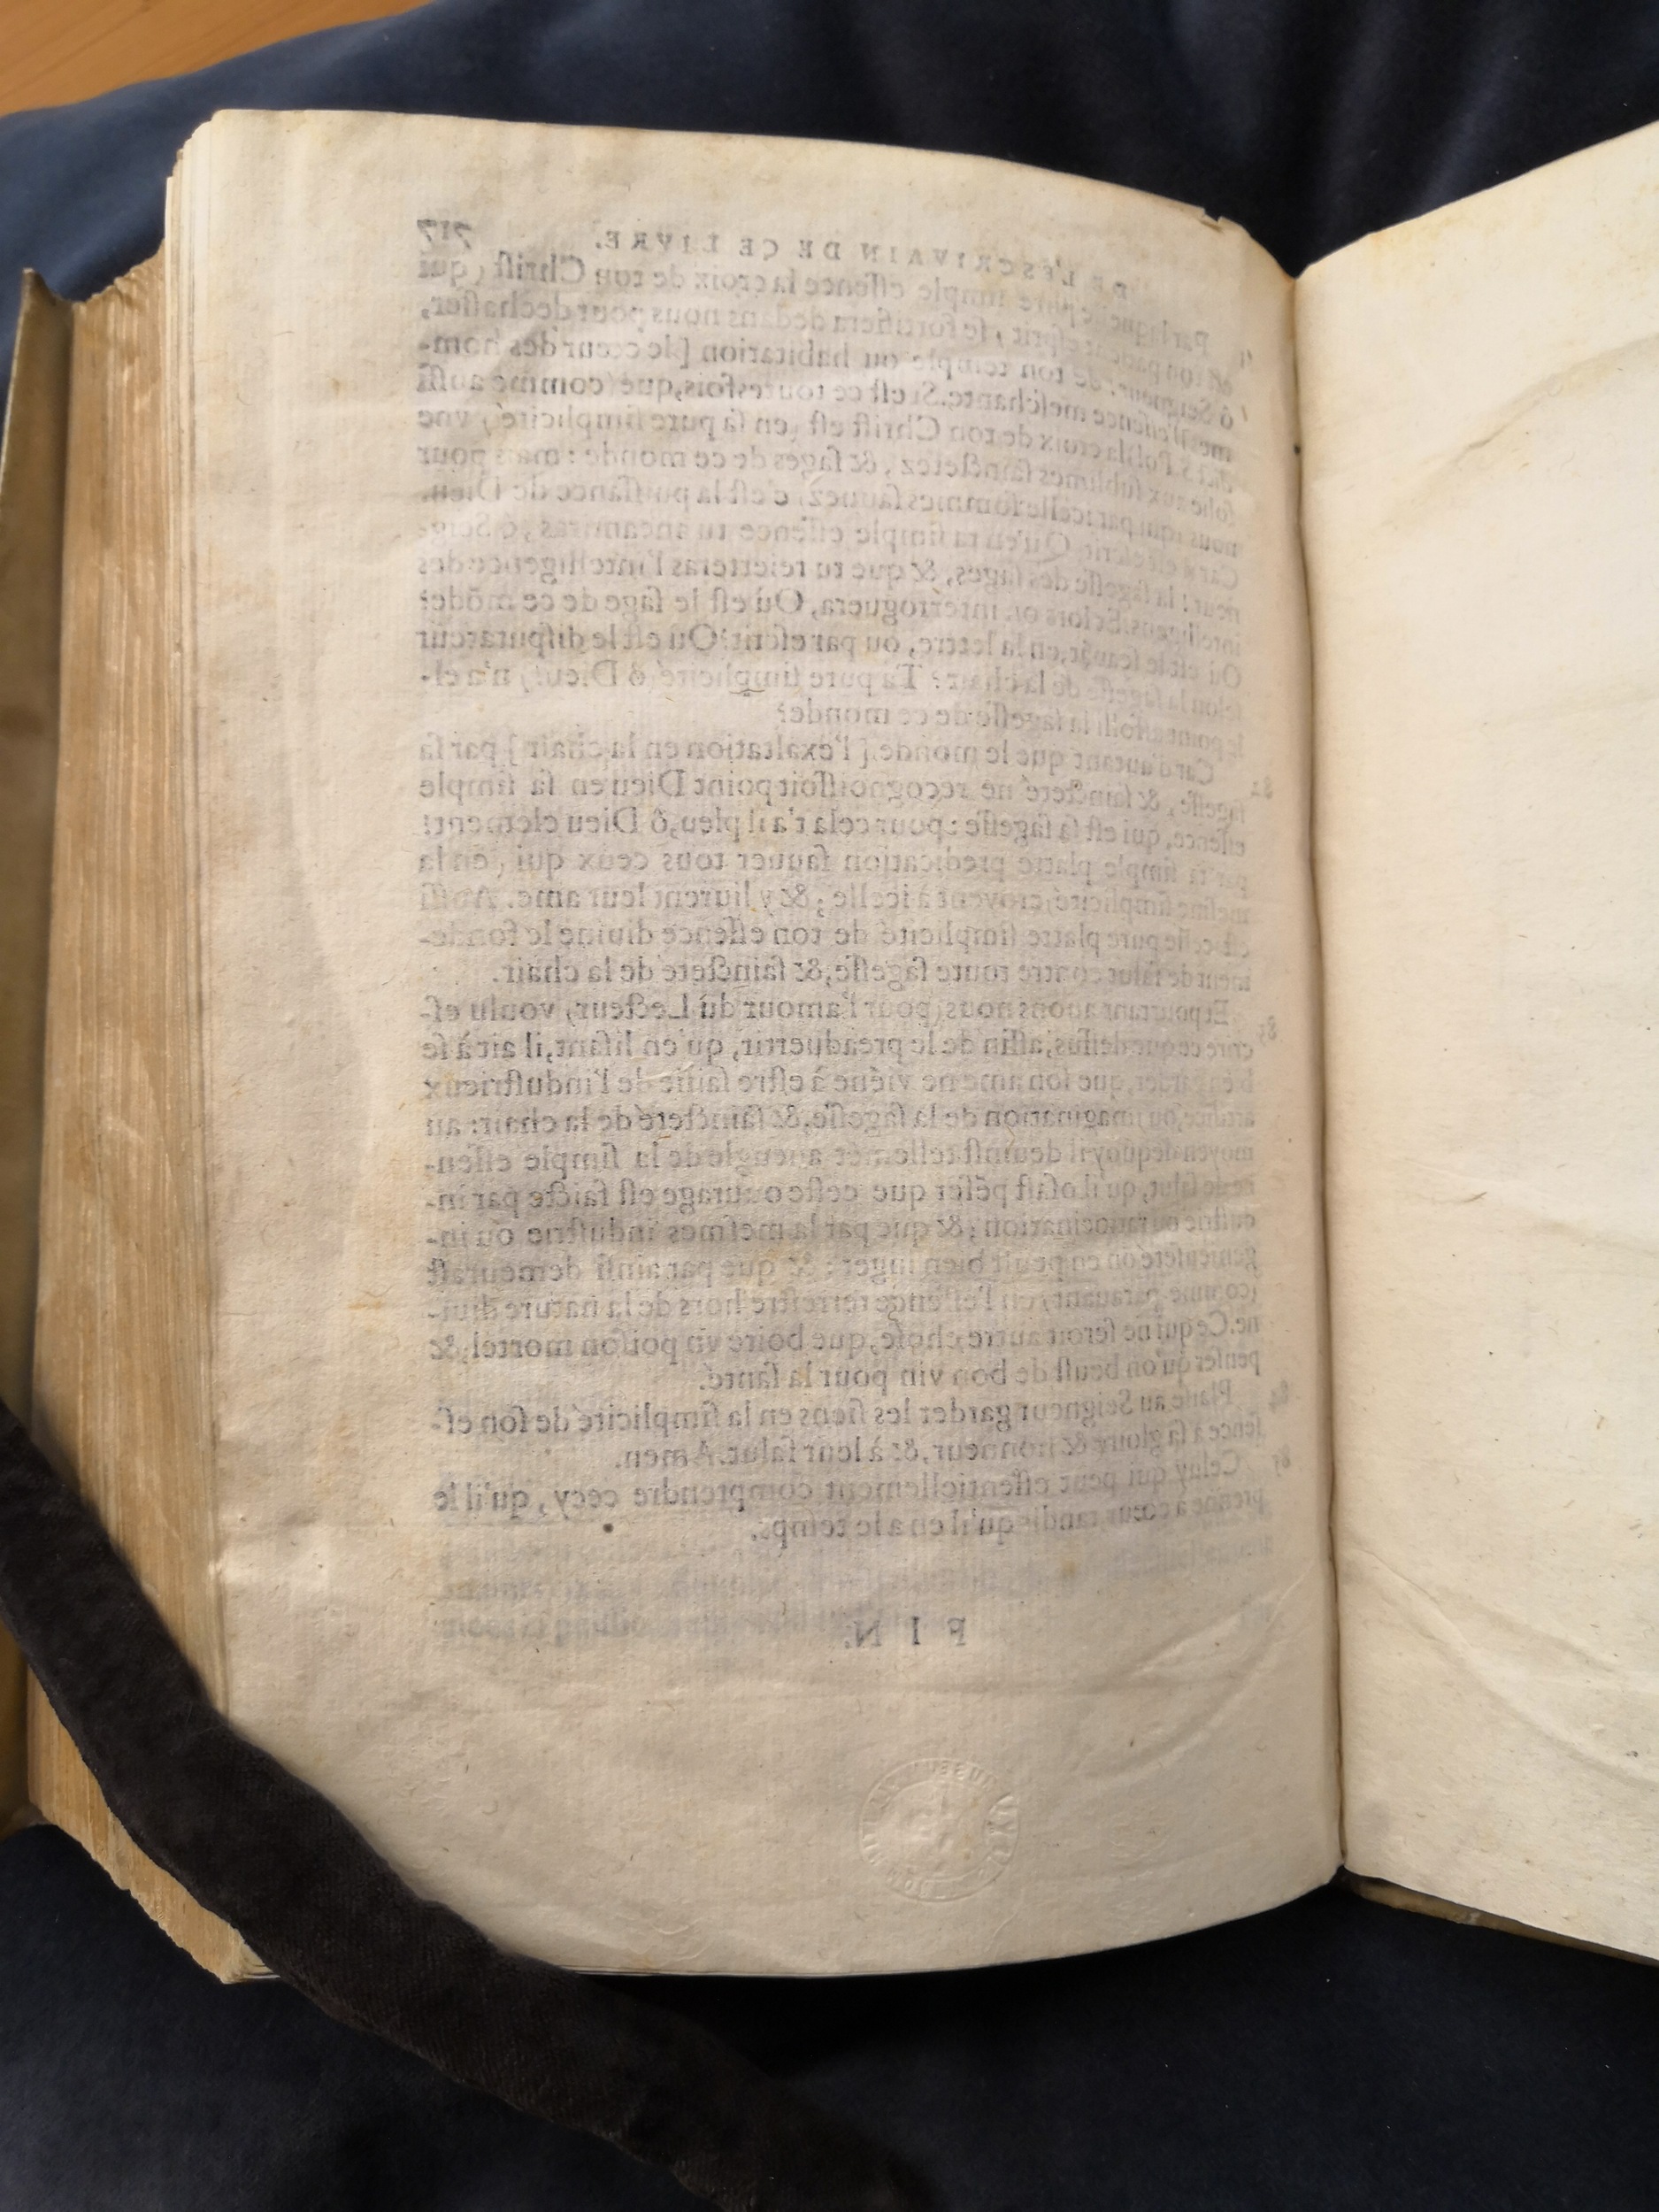 DE L'ESCRIVAIN DE CE LIVRE. 717
Par laquelle pure simple essence la croix de ton Christ (qui
est ton patient esprit) se fortifiera dedans nous pour dechasser,
ô Seigneur, de ton temple ou habitation [le cœur des hom-
mes] l'essence meschante. Si est ce toutesfois, que (comme aussi
dit S. Pol) la croix de ton Christ est (en sa pure simplicité) vne
folie aux sublimes sainctetez, & sages de ce monde: mais pour
nous (qui par icelle sommes sauuez) c'est la puissance de Dieu.
Car il est escrit, Qu'en ta simple essence tu aneantiras, ô Seig-
neur! la sagesse des sages, & que tu reietteras l'intelligence des
intelligens. Et lors on interroguera, Où est le sage de ce mõde?
Où est le sçauãt, en la lettre, ou par escrit? Où est le disputateur
selon la sagesse de la chair? Ta pure simplicité (ô Dieu!) n'a el-
le point affolli la sagesse de ce monde?
82 Car d'autant que le monde [l'exaltation en la chair] par sa
sagesse, & saincteté ne recognoissoit point Dieu en sa simple
essence, qui est sa sagesse: pour cela t'a il pleu, ô Dieu clement!
par ta simple platte predication sauuer tous ceux qui (en la
mesme simplicité) croyent à icelle; & y liurent leur ame. Aussi
est celle pure platte simplicité de ton essence diuine le fonde-
ment de salut contre toute sagesse, & saincteté de la chair.
83 Et pourtant auons nous (pour l'amour du Lecteur) voulu es-
crire ce que dessus, affin de le preaduertir, qu'en lisant, il ait à se
biẽ garder, que son ame ne viẽne à estre saisie de l'industrieux
artifice, ou imagination de la sagesse, & saincteté de la chair: au
moyen dequoy il deuinst tellemẽt aueugle de la simple essen-
ce de salut, qu'il osast pẽser que ceste ouurage est faicte par in-
dustrie ou ratiocination; & que par la mesmes industrie ou in-
geniesité on en peust bien iuger: & que par ainsi demeurast
(comme parauant) en l'essence terrestre hors de la nature diui-
ne. Ce qui ne seroit autre chose, que boire vn poison mortel, &
penser qu'on beust de bon vin pour la santé.
84 Plaise au Seigneur garder les siens en la simplicité de son es-
sence à sa gloire & honneur, & à leur salut. Amen.
85 Celuy qui peut essentiellement comprendre cecy, qu'il le
prenne à cœur tandis qu'il en a le temps.
F I N.